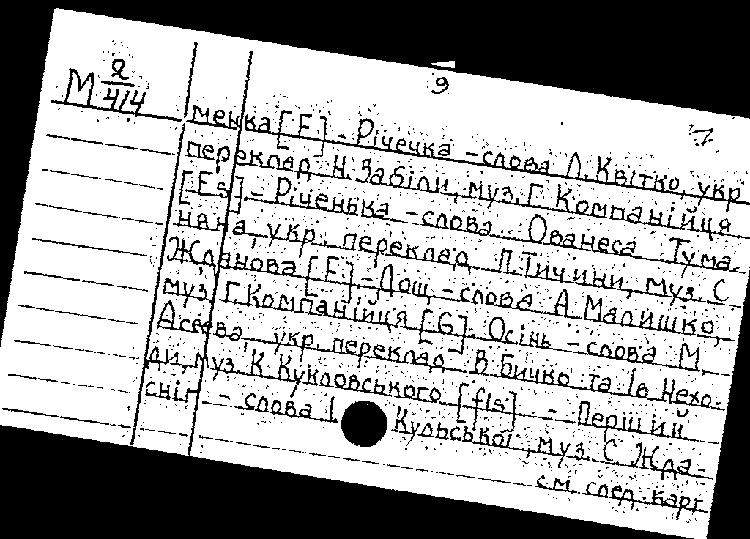 9
М 2/414
менка [F] - Річечка - слова Л. Квітко, укр
переклад Н. Забіли, муз. Г. Компанійця
[Es] - Річенька - слова Ованеса Тума.
няна, укр. переклад П. Тичини, муз. С.
Жданова [F] - Дощ - слова А. Малишко,
муз. Г. Компанійця [G]. Осінь - слова М.
Асеєва, укр. переклад В. Бичко та Ів Нехо.
ди, муз. К. Кукловського [fis] - Перший
сніг - слова І Кульської, муз. С Жда-
см. след. карт